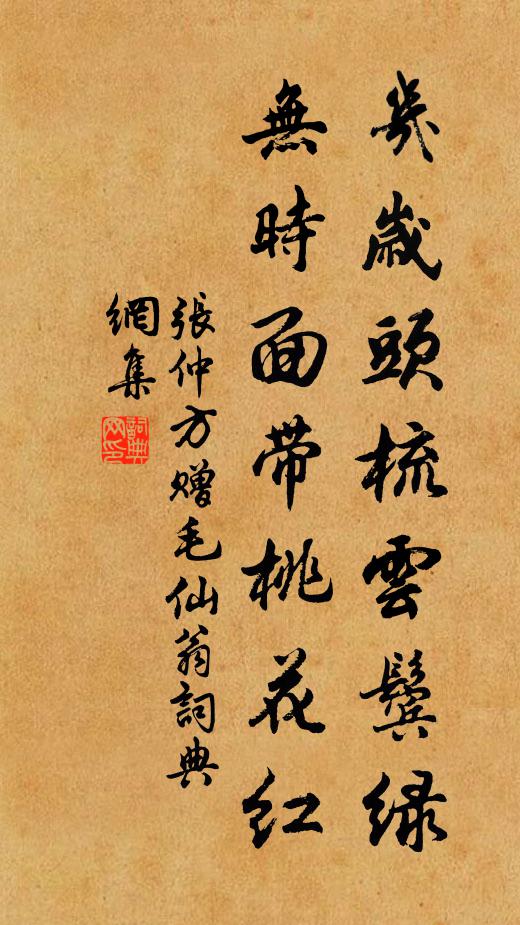 幾歲頭梳雲鬢綠
無時面带桃花紅
張仲方赠毛仙翁詞典
網集
詞典网印